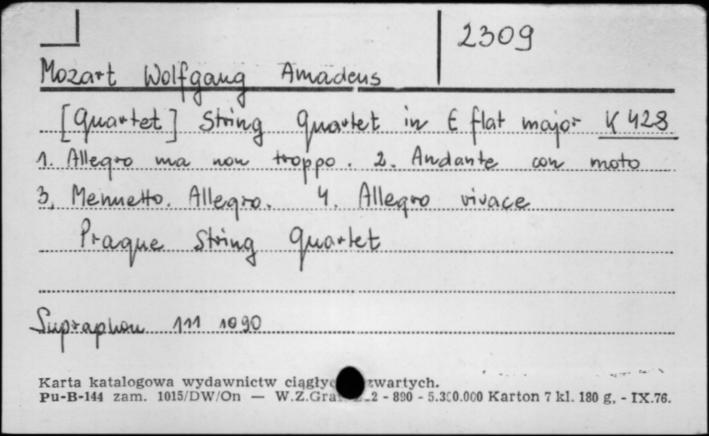 2309
Mozart Wolfgang Amadeus
[Quartet] String Quartet in E flat major K 428
1. Allegro ma non troppo. 2. Andante con moto
3. Menuetto. Allegro. 4. Allegro vivace
Prague String Quartet
Supraphon 111 1090
Karta katalogowa wydawnictw zwartych.
Pu-B-144 zam. 1015/DW/On — W.Z.Graf. 2 - 890 - 5.300.000 Karton 7 kl. 180 g. - IX.76.